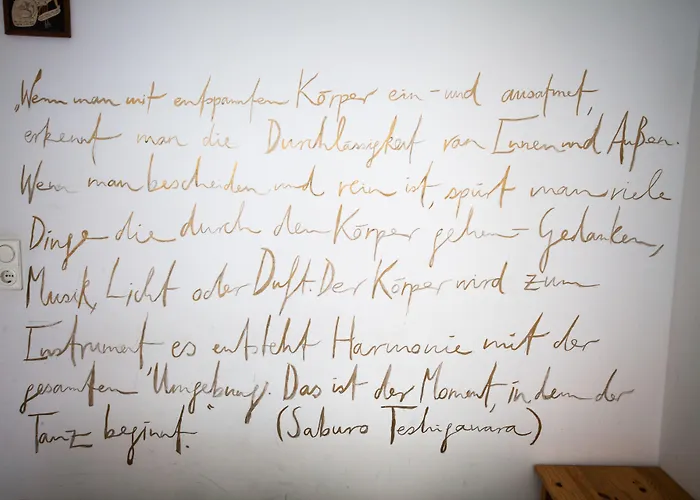 „Wenn man mit entspanntem Körper ein- und ausatmet,
erkennt man die Durchlässigkeit von Innen und Außen.
Wenn man bescheiden und rein ist, spürt man viele
Dinge die durch den Körper gehen - Gedanken,
Musik, Licht oder Duft. Der Körper wird zum
Instrument es entsteht Harmonie mit der
gesamten Umgebung. Das ist der Moment, in dem der
Tanz beginnt.“ (Saburo Teshigawara)